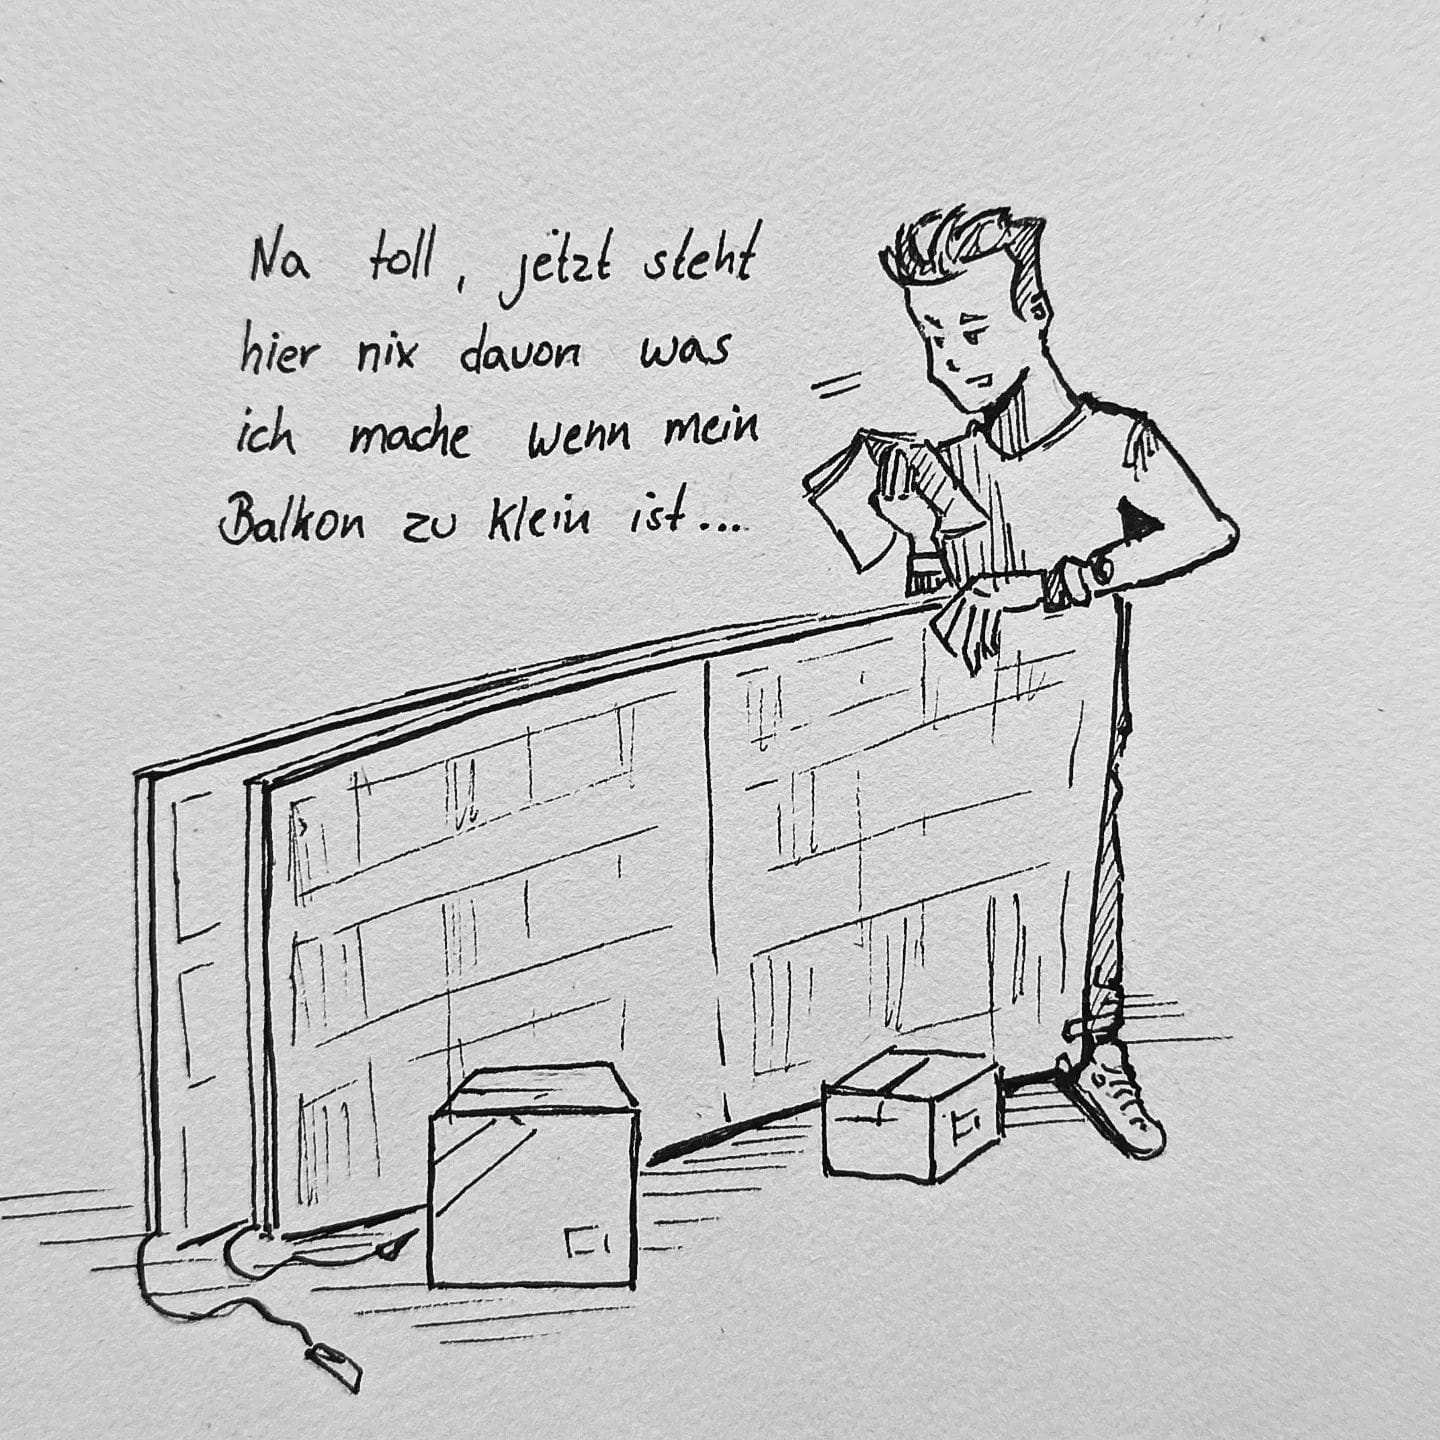 Na toll, jetzt steht
hier nix davon was
ich mache wenn mein
Balkon zu klein ist...